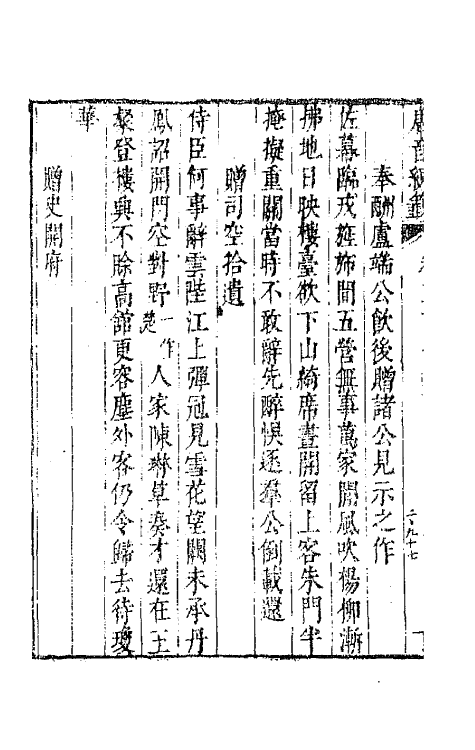 唐音統籤
奉酬盧端公飲後贈諸公見示之作
二九十七
佐幕臨戎旌旆間五營無事萬家閒風吹楊柳漸
拂地日映樓臺欲下山綺席晝開留上客朱門半
掩擬重關當時不敢辭先醉悞逐羣公倒載還
贈司空拾遺
侍臣何事辭雲陛江上彈冠見雪花望闕未承丹
鳳詔開門空對野一作楚人家陳琳草奏才還在王
粲登樓興不賒高館更容塵外客仍令歸去待瓊
華
贈史開府